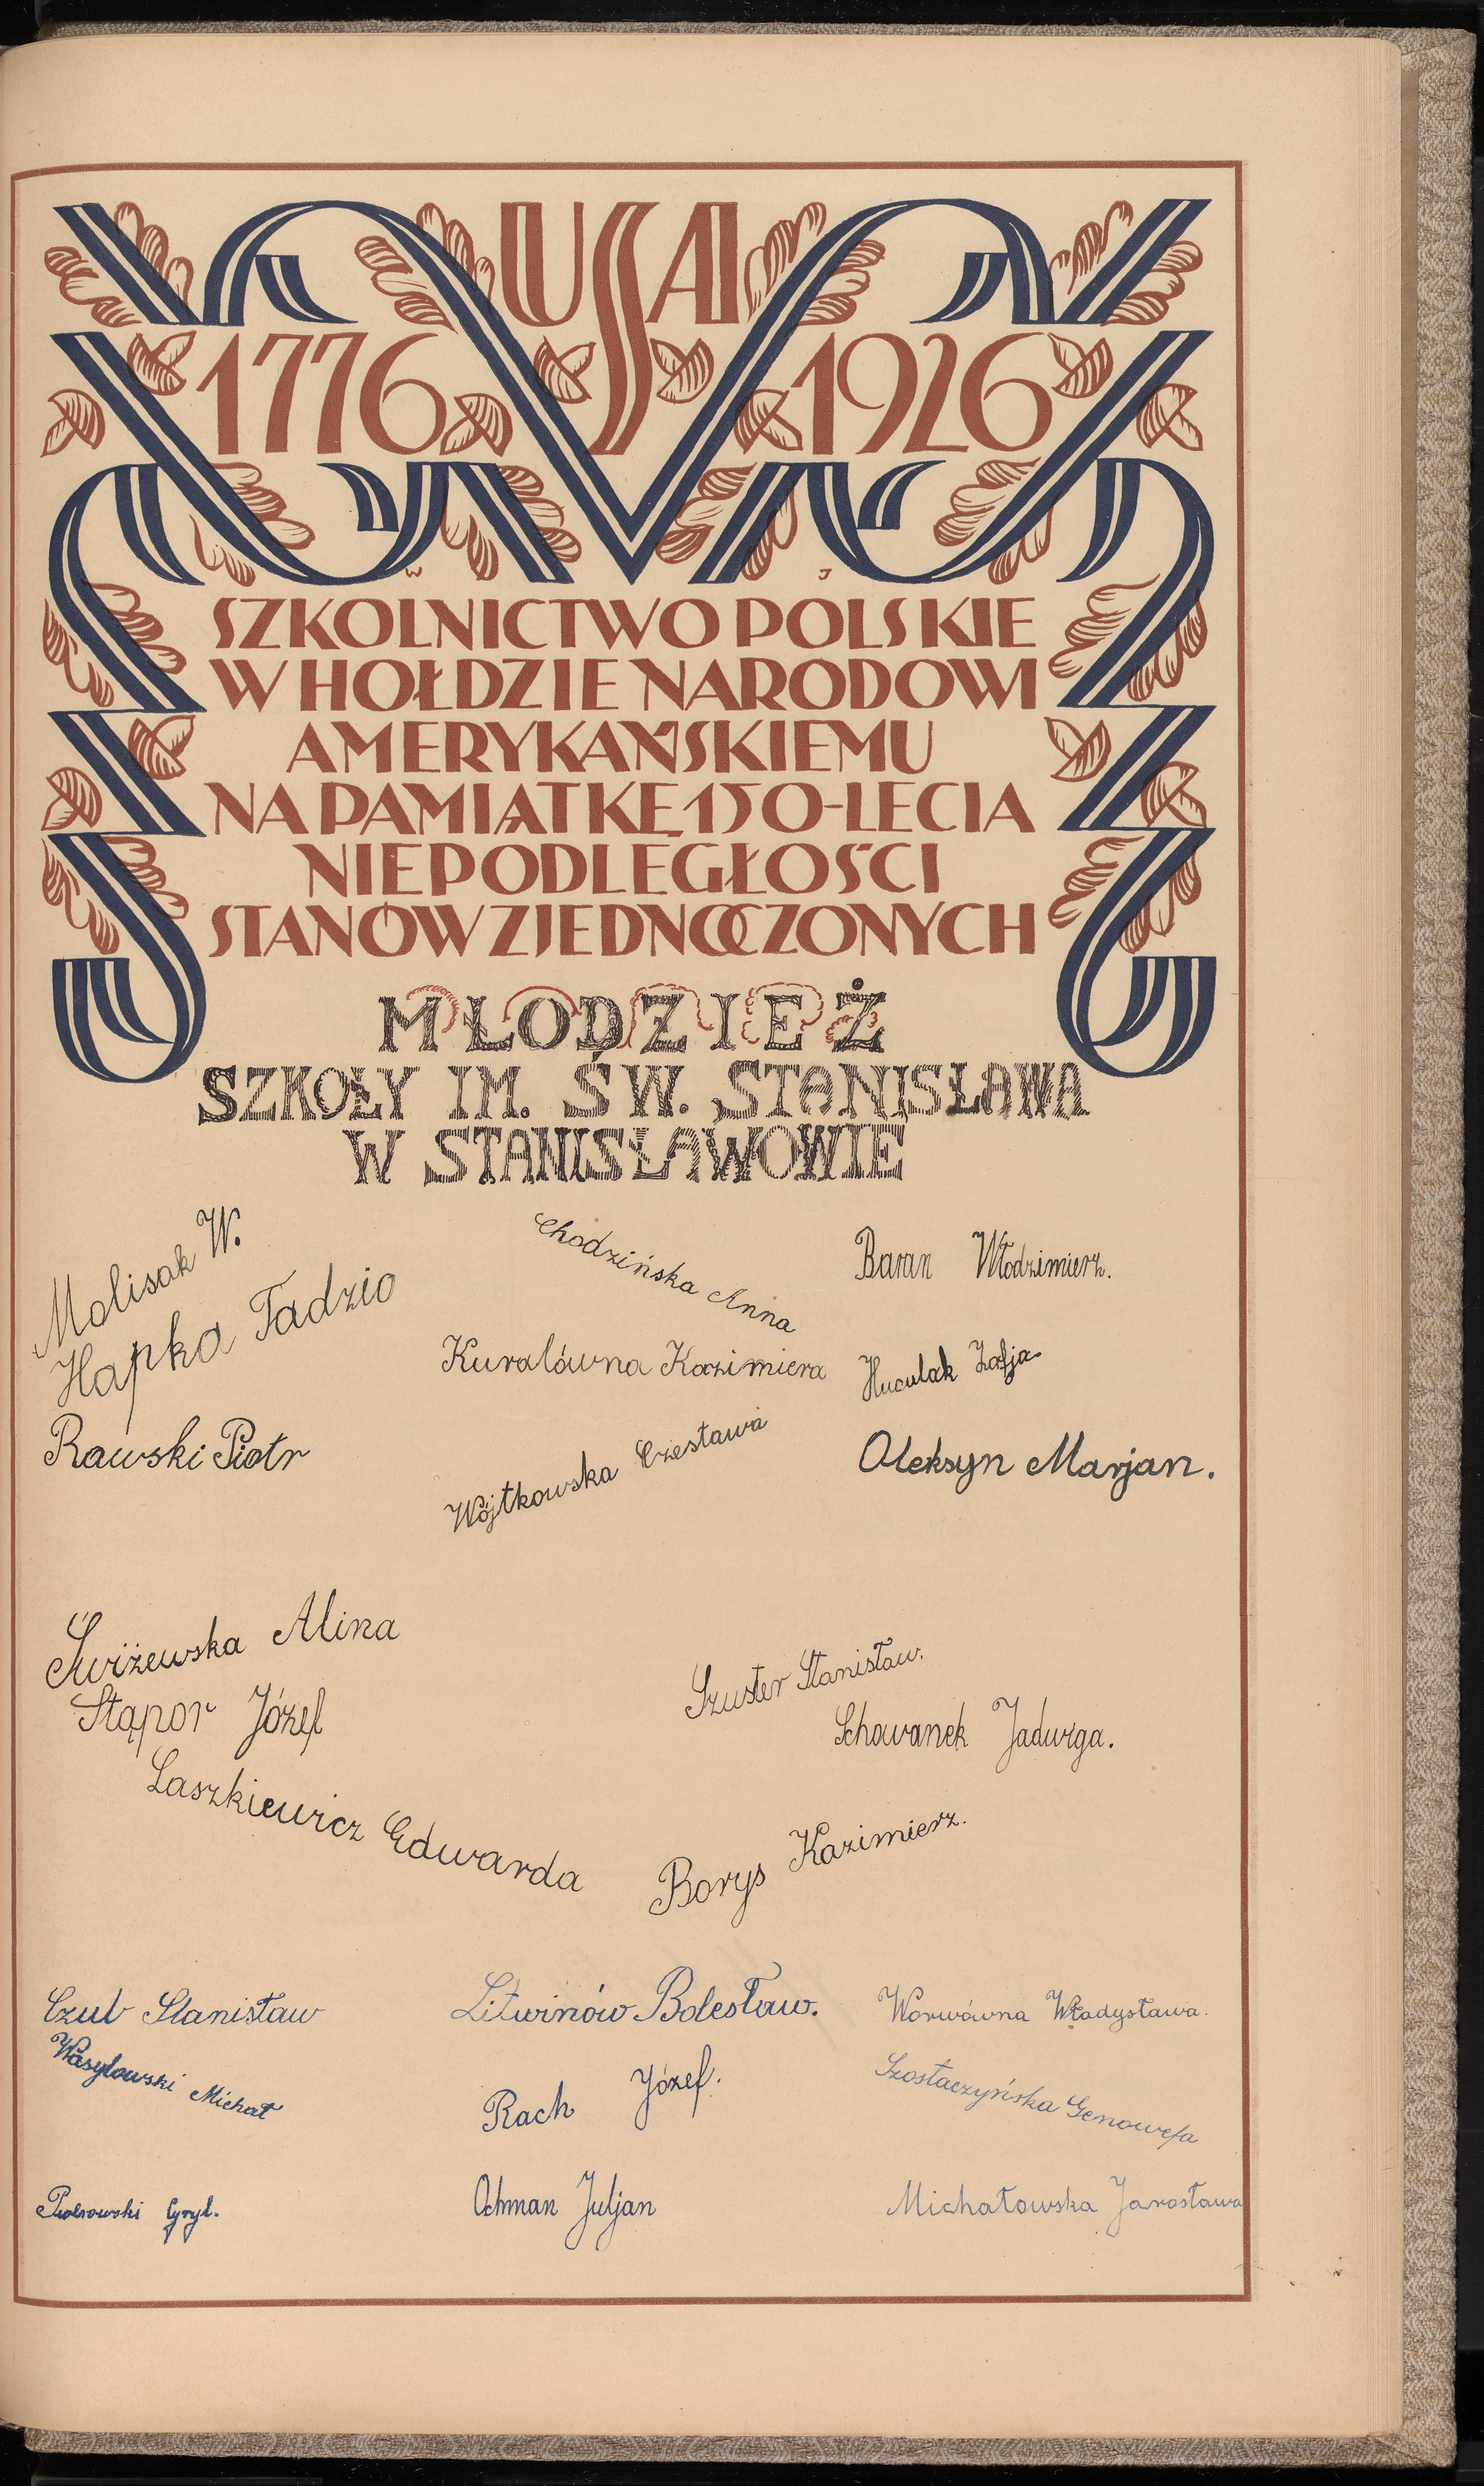 USA
1776 1926
W J
SZKOLNICTWO POLSKIE
W HOŁDZIE NARODOWI
AMERYKAŃSKIEMU
NA PAMIĄTKĘ 150-LECIA
NIEPODLEGŁOŚCI
STANÓW ZJEDNOCZONYCH
MŁODZIEŻ
SZKOŁY IM. ŚW. STANISŁAWA
W STANISŁAWOWIE
Molisak W.
Hapka Tadzio
Rawski Piotr
Chodzińska Anna
Kuralówna Kazimiera
Wójtkowska Czesława
Baran Włodzimierz.
Huculak Zofja
Oleksyn Marjan.
Świżewska Alina
Stąpor Józef
Laszkiewicz Edwarda
Szuster Stanisław.
Schowanek Jadwiga.
Borys Kazimierz.
Czub Stanisław
Wasylowski Michał
Cyryl.
Litwinów Bolesław.
Rach Józef.
Ochman Juljan
Worwówna Władysława.
Szostaczyńska Genowefa
Michałowska Jarosława